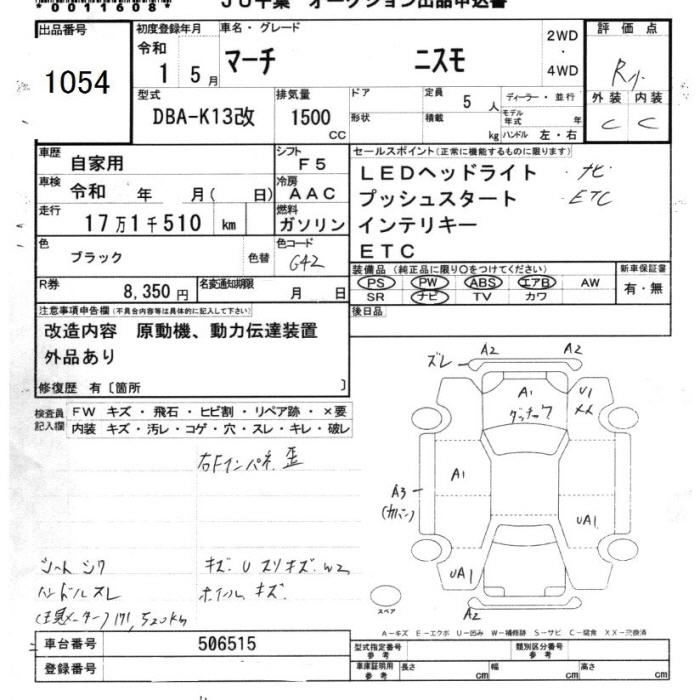 *0011608* JU千葉 オークション出品申込書
出品番号 初度登録年月 車名・グレード 2WD ・ 4WD 評価点
1054 令和 1 5月 マーチ ニスモ R小
型式 排気量 ドア 定員 5人 ディーラー・並行 外装 内装
DBA-K13改 1500 CC 形状 積載 kg モデル年式 年 ハンドル 左・右 C C
車歴 自家用 シフト F5 セールスポイント(正常に機能するものに限ります)
車検 令和 年 月( 日) 冷房 AAC LEDヘッドライト ナビ
走行 17万1千510 km 燃料 ガソリン プッシュスタート ETC
インテリキー
色 ブラック 色替 色コード G42 ETC
R券 8,350円 名変通知期限 月 日 装備品(純正品に限り○をつけてください) 新車保証書
PS PW ABS エアB AW 有・無
SR ナビ TV カワ
注意事項申告欄(不具合内容等は具体的に記入して下さい) 後日品
改造内容 原動機、動力伝達装置
外品あり
修復歴 有〔箇所 〕
検査員記入欄 FW キズ・飛石・ヒビ割・リペア跡・×要
内装 キズ・汚レ・コゲ・穴・スレ・キレ・破レ
ズレ A2 A2
A1 U1
XX
右Fインパネ歪
A1
A3
(カバー)
UA1
シートシワ キズ・Uスリキズ・W2 UA1
ハンドルスレ ホイールキズ
(注見メーター)171,520km スペア A2
A-キズ E-エクボ U-凹み W-補修跡 S-サビ C-腐食 XX-交換済
車台番号 506515 型式指定番号 参考 類別区分番号 参考
登録番号 車庫証明用 参考 長さ cm 幅 cm 高さ cm